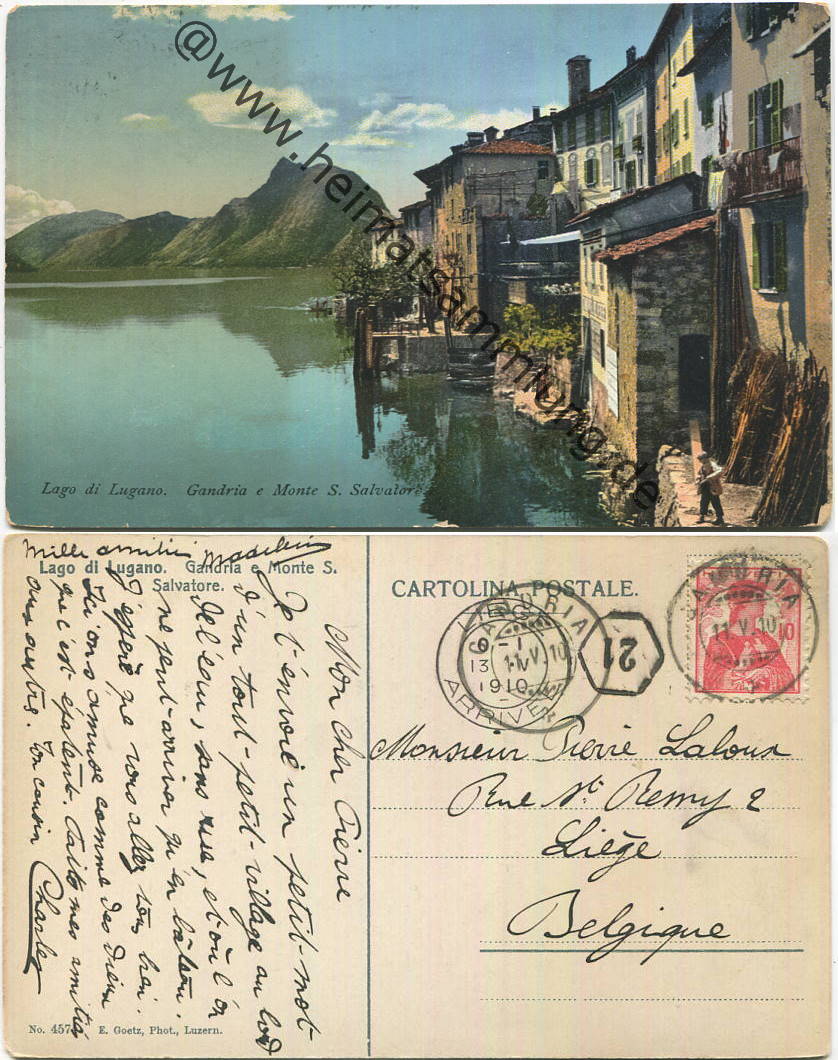 @www.heimatsammlung.de
Lago di Lugano. Gandria e Monte S. Salvatore
Mille amitiés Madeleine
Lago di Lugano. Gandria e Monte S.
Salvatore.
CARTOLINA POSTALE.
GANDRIA
11.V.10
10
GANDRIA
11.V.10
LIEGE
13 V
1910
ARRIVEE
21
Monsieur Pierre Laloux
Rue St Remy 2
Liège
Belgique
Mon cher Pierre
Je t'envoie un petit-mot
d'un tout-petit-village au bord
de l'eau, sans rue, et où l'on
ne peut-arriver qu'en bateau.
J'espère que vous allez tous bien.
Ici on s'amuse comme des dieux
que c'est épatant. Faites mes amitiés
aux autres. Ton cousin Charles
No. 457
E. Goetz, Phot., Luzern.